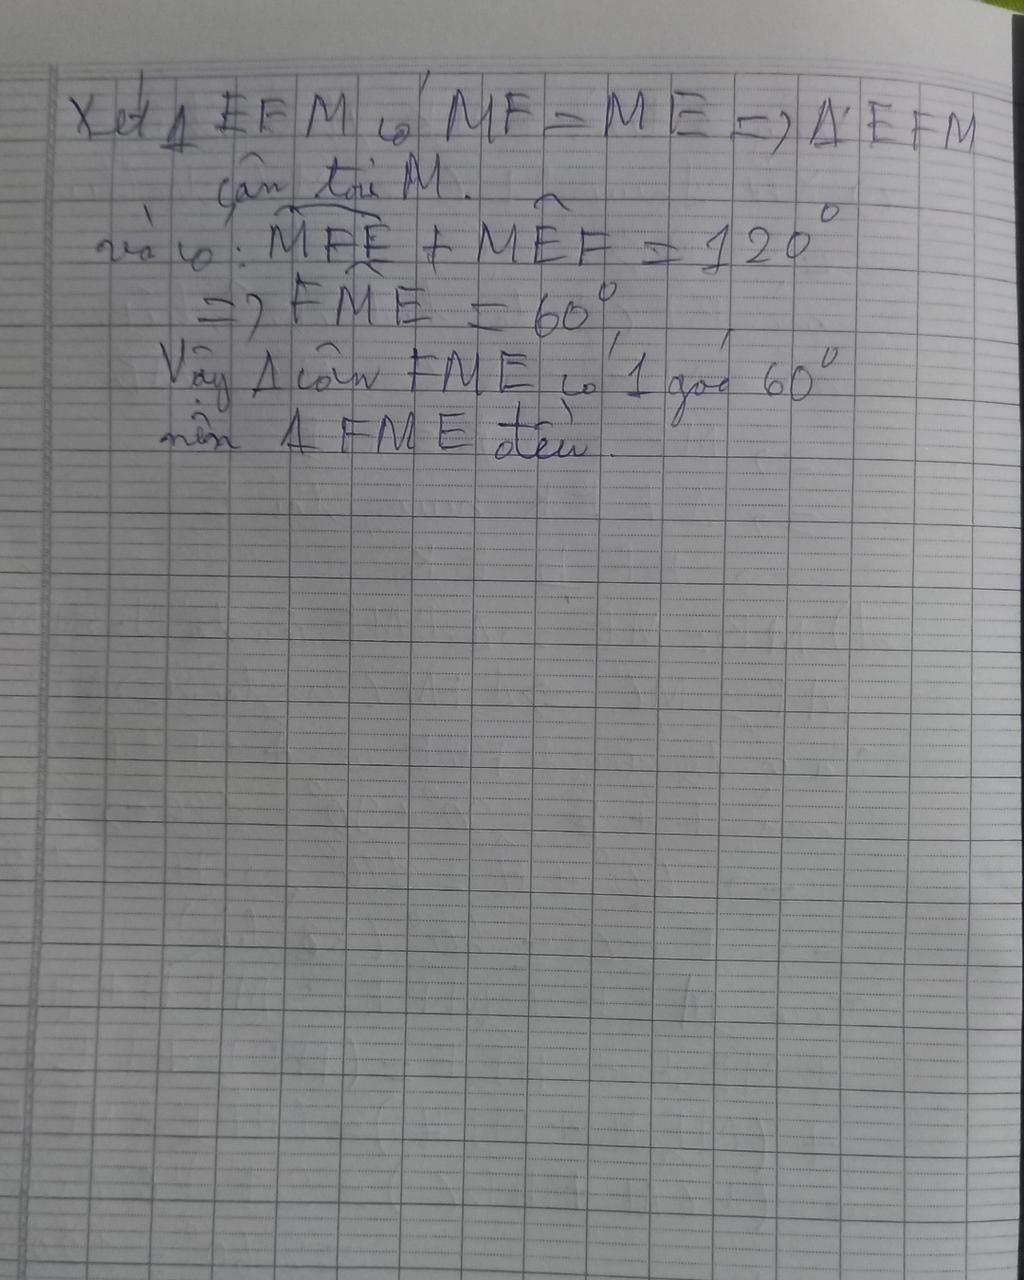 Xét Δ EFM có MF = ME => Δ EFM
cân tại M.
và có: MFE + MÊF = 120°
=> FM̂E = 60°
Vậy Δ cân FME có 1 góc 60°
nên Δ FME đều.